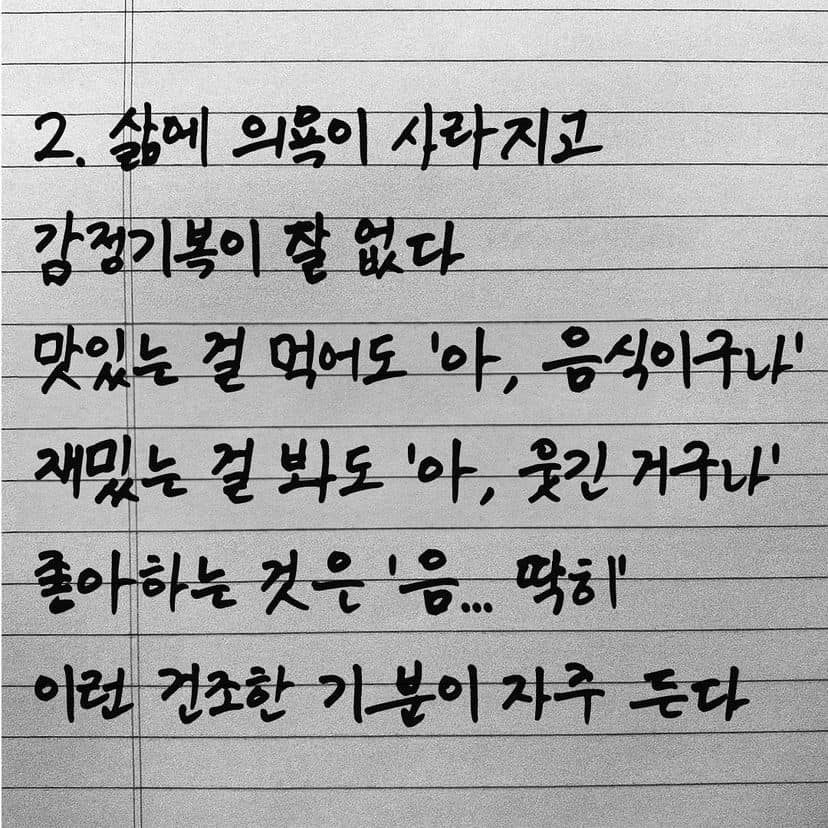 2. 삶에 의욕이 사라지고
감정기복이 잘 없다
맛있는 걸 먹어도 '아, 음식이구나'
재밌는 걸 봐도 '아, 웃긴 거구나'
좋아하는 것은 '음... 딱히'
이런 건조한 기분이 자주 든다